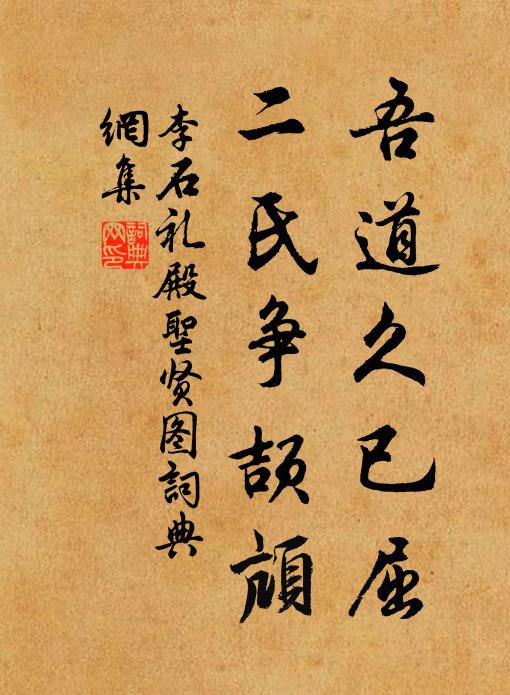 吾道久已屈
二氏争颉頏
李石礼殿聖贤图詞典
網集
詞典网印